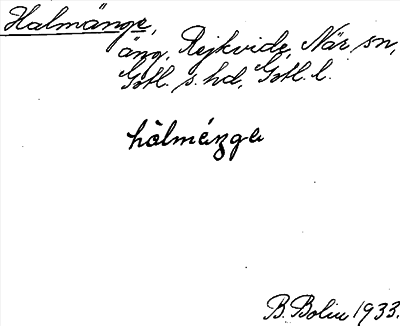 Halmänge,
äng, Rejkvide, När sn,
Gotl. s. hd, Gotl. l.
hàlménga
B. Bolin 1933.